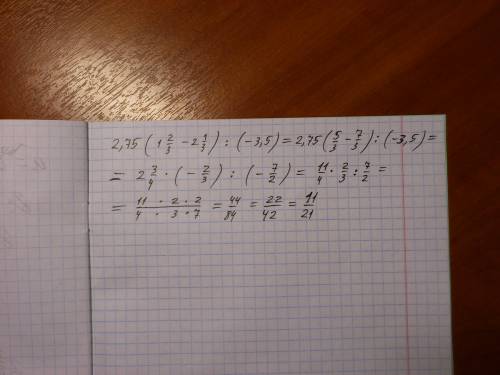 2,75 (1 2/3 - 2 1/3) : (-3,5) = 2,75 (5/3 - 7/3) : (-3,5) =
= 2 3/4 · (- 2/3) : (- 7/2) = 11/4 · 2/3 : 7/2 =
= 11 · 2 · 2 / 4 · 3 · 7 = 44/84 = 22/42 = 11/21